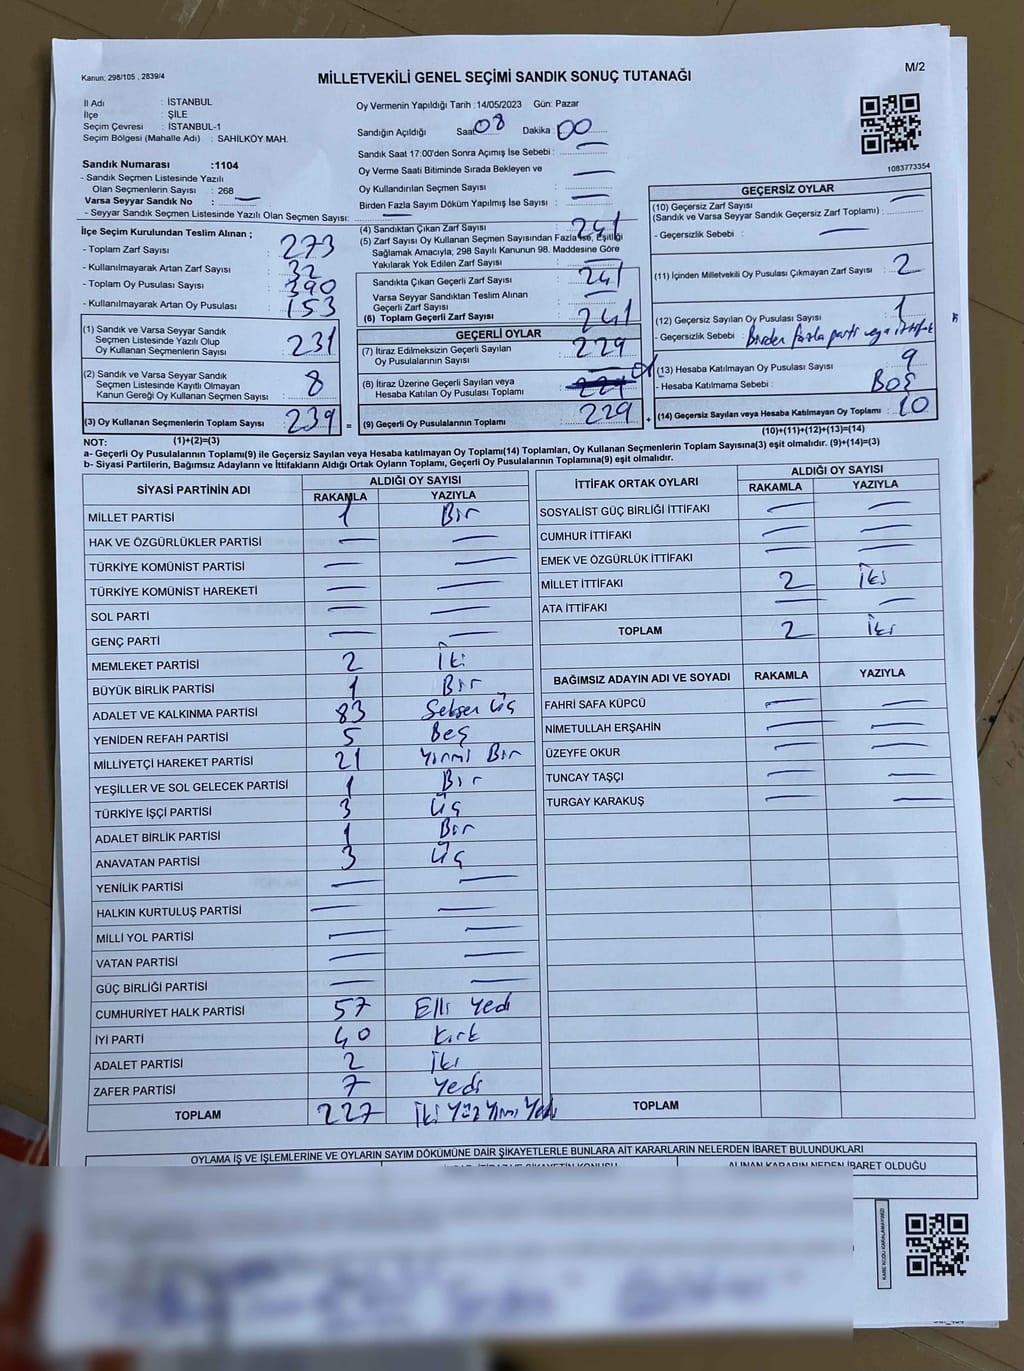 Kanun; 298/105 , 2839/4
MİLLETVEKİLİ GENEL SEÇİMİ SANDIK SONUÇ TUTANAĞI
M/2
İl Adı : İSTANBUL
İlçe : ŞİLE
Seçim Çevresi : İSTANBUL-1
Seçim Bölgesi (Mahalle Adı) : SAHİLKÖY MAH.
Sandık Numarası :1104
- Sandık Seçmen Listesinde Yazılı
Olan Seçmenlerin Sayısı : 268
Varsa Seyyar Sandık No : —
- Seyyar Sandık Seçmen Listesinde Yazılı Olan Seçmen Sayısı: —
Oy Vermenin Yapıldığı Tarih :14/05/2023 Gün: Pazar
Sandığın Açıldığı Saat 08 Dakika 00
Sandık Saat 17:00'den Sonra Açımış İse Sebebi : —
Oy Verme Saati Bitiminde Sırada Bekleyen ve
Oy Kullandırılan Seçmen Sayısı : —
Birden Fazla Sayım Döküm Yapılmış İse Sayısı : —
1083773354
İlçe Seçim Kurulundan Teslim Alınan ;
- Toplam Zarf Sayısı : 273
- Kullanılmayarak Artan Zarf Sayısı : 32
- Toplam Oy Pusulası Sayısı : 390
- Kullanılmayarak Artan Oy Pusulası : 153
(1) Sandık ve Varsa Seyyar Sandık
Seçmen Listesinde Yazılı Olup
Oy Kullanan Seçmenlerin Sayısı : 231
(2) Sandık ve Varsa Seyyar Sandık
Seçmen Listesinde Kayıtlı Olmayan
Kanun Gereği Oy Kullanan Seçmen Sayısı : 8
(3) Oy Kullanan Seçmenlerin Toplam Sayısı : 239
(4) Sandıktan Çıkan Zarf Sayısı : 241
(5) Zarf Sayısı Oy Kullanan Seçmen Sayısından Fazla ise, Eşitliği
Sağlamak Amacıyla; 298 Sayılı Kanunun 98. Maddesine Göre
Yakılarak Yok Edilen Zarf Sayısı : —
Sandıkta Çıkan Geçerli Zarf Sayısı : 241
Varsa Seyyar Sandıktan Teslim Alınan
Geçerli Zarf Sayısı : —
(6) Toplam Geçerli Zarf Sayısı : 241
GEÇERLİ OYLAR
(7) İtiraz Edilmeksizin Geçerli Sayılan
Oy Pusulalarının Sayısı : 229
(8) İtiraz Üzerine Geçerli Sayılan veya
Hesaba Katılan Oy Pusulası Toplamı :
= (9) Geçerli Oy Pusulalarının Toplamı : 229 +
GEÇERSİZ OYLAR
(10) Geçersiz Zarf Sayısı
(Sandık ve Varsa Seyyar Sandık Geçersiz Zarf Toplamı) : —
- Geçersizlik Sebebi : —
(11) İçinden Milletvekili Oy Pusulası Çıkmayan Zarf Sayısı : 2
(12) Geçersiz Sayılan Oy Pusulası Sayısı : 1
- Geçersizlik Sebebi : Birden fazla parti veya ittifak
(13) Hesaba Katılmayan Oy Pusulası Sayısı : 9
- Hesaba Katılmama Sebebi : Boş
(14) Geçersiz Sayılan veya Hesaba Katılmayan Oy Toplamı : 10
(10)+(11)+(12)+(13)=(14)
NOT: (1)+(2)=(3)
a- Geçerli Oy Pusulalarının Toplamı(9) ile Geçersiz Sayılan veya Hesaba Katılmayan Oy Toplamı(14) Toplamları, Oy Kullanan Seçmenlerin Toplam Sayısına(3) eşit olmalıdır. (9)+(14)=(3)
b- Siyasi Partilerin, Bağımsız Adayların ve İttifakların Aldığı Ortak Oyların Toplamı, Geçerli Oy Pusulalarının Toplamına(9) eşit olmalıdır.
SİYASİ PARTİNİN ADI ALDIĞI OY SAYISI
RAKAMLA YAZIYLA
MİLLET PARTİSİ 1 Bir
HAK VE ÖZGÜRLÜKLER PARTİSİ — —
TÜRKİYE KOMÜNİST PARTİSİ — —
TÜRKİYE KOMÜNİST HAREKETİ — —
SOL PARTİ — —
GENÇ PARTİ — —
MEMLEKET PARTİSİ 2 İki
BÜYÜK BİRLİK PARTİSİ 1 Bir
ADALET VE KALKINMA PARTİSİ 83 Seksen Üç
YENİDEN REFAH PARTİSİ 5 Beş
MİLLİYETÇİ HAREKET PARTİSİ 21 Yirmi Bir
YEŞİLLER VE SOL GELECEK PARTİSİ 1 Bir
TÜRKİYE İŞÇİ PARTİSİ 3 Üç
ADALET BİRLİK PARTİSİ 1 Bir
ANAVATAN PARTİSİ 3 Üç
YENİLİK PARTİSİ — —
HALKIN KURTULUŞ PARTİSİ — —
MİLLİ YOL PARTİSİ — —
VATAN PARTİSİ — —
GÜÇ BİRLİĞİ PARTİSİ — —
CUMHURİYET HALK PARTİSİ 57 Elli Yedi
İYİ PARTİ 40 Kırk
ADALET PARTİSİ 2 İki
ZAFER PARTİSİ 7 Yedi
TOPLAM 227 İki Yüz Yirmi Yedi
İTTİFAK ORTAK OYLARI ALDIĞI OY SAYISI
RAKAMLA YAZIYLA
SOSYALİST GÜÇ BİRLİĞİ İTTİFAKI — —
CUMHUR İTTİFAKI — —
EMEK VE ÖZGÜRLÜK İTTİFAKI — —
MİLLET İTTİFAKI 2 İki
ATA İTTİFAKI — —
TOPLAM 2 İki
BAĞIMSIZ ADAYIN ADI VE SOYADI RAKAMLA YAZIYLA
FAHRİ SAFA KÜPCÜ — —
NİMETULLAH ERŞAHİN — —
ÜZEYFE OKUR — —
TUNCAY TAŞÇI — —
TURGAY KARAKUŞ — —
TOPLAM
OYLAMA İŞ VE İŞLEMLERİNE VE OYLARIN SAYIM DÖKÜMÜNE DAİR ŞİKAYETLERLE BUNLARA AİT KARARLARIN NELERDEN İBARET BULUNDUKLARI
ALINAN KARARIN NEDEN İBARET OLDUĞU
KARE KODU KARALAMAYINIZ!